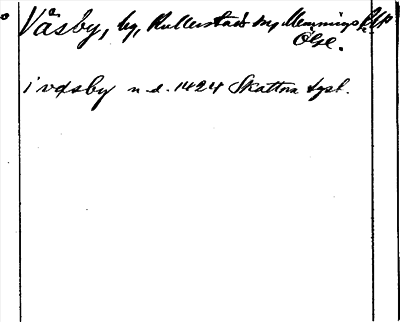 Väsby, by, Kullerstads sn, Memmings
Ögl.
i väsby n.d. 1424 Skattna